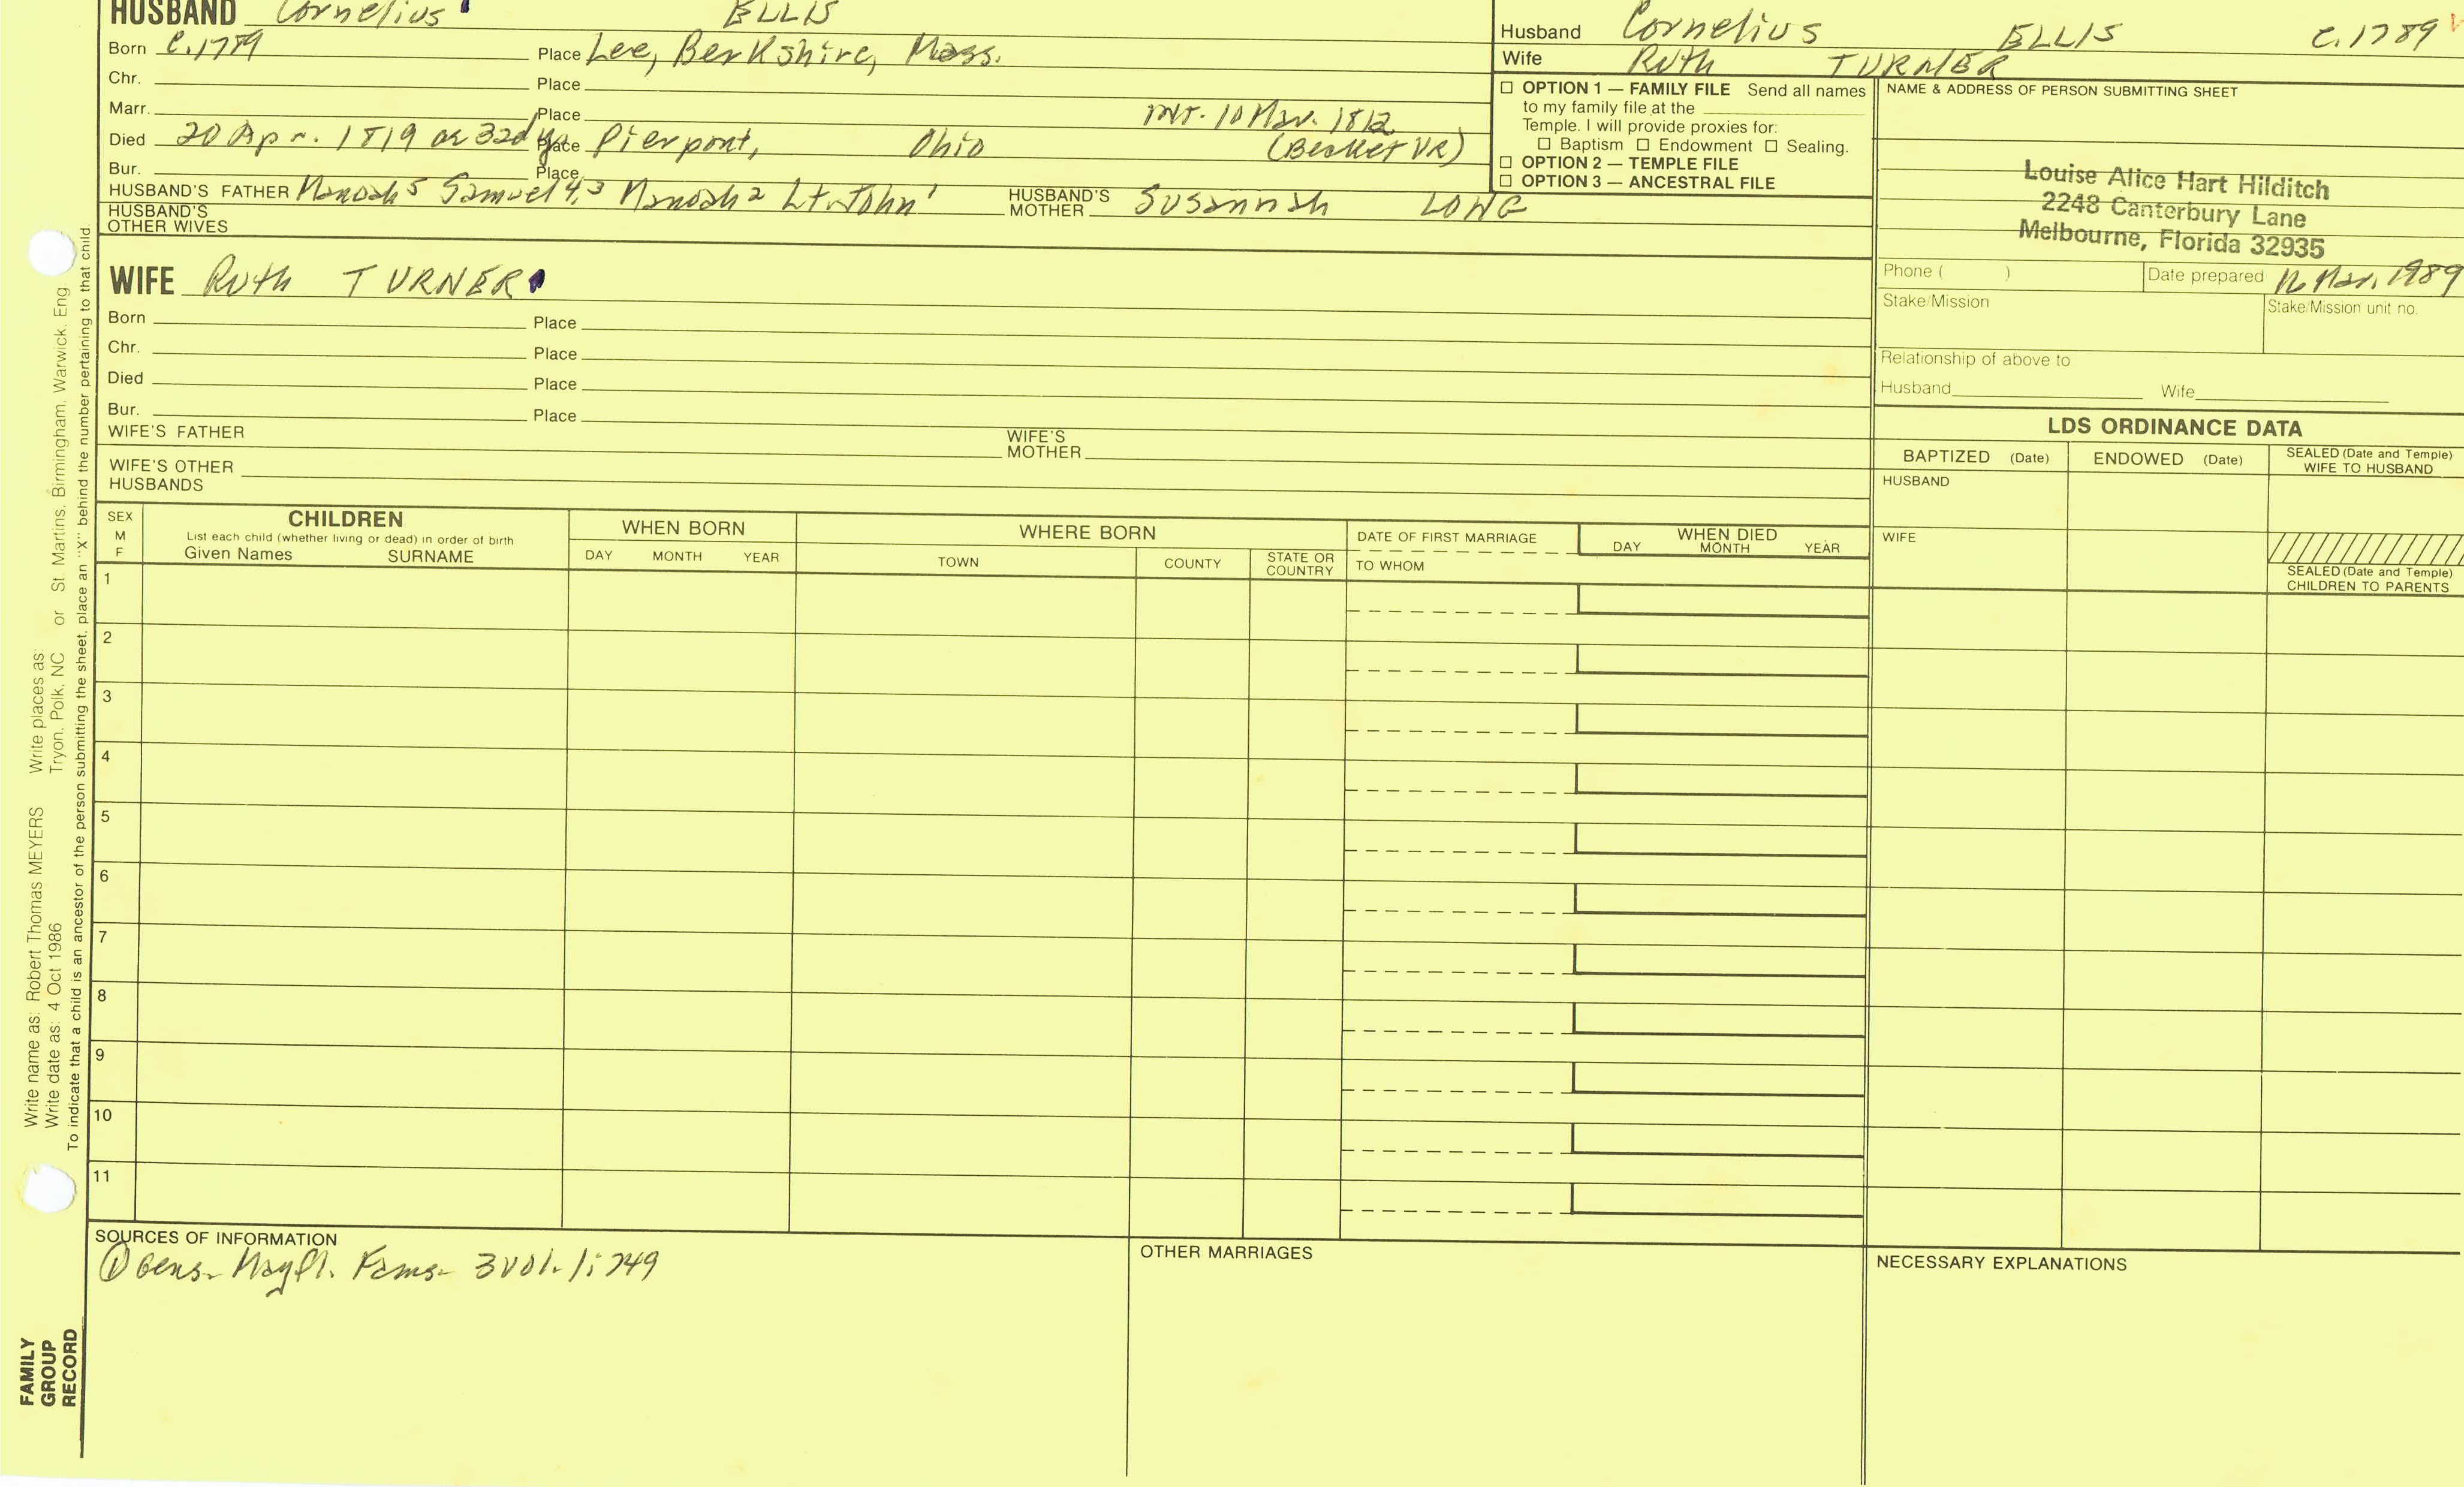 HUSBAND Cornelius ELLIS
Born c.1789 Place Lee, Berkshire, Mass.
Chr. Place
Marr. Place int. 10 Mar. 1812
Died 20 Apr. 1819 ae 32d yr Place Pierpont, Ohio (Becket VR)
Bur. Place
HUSBAND'S FATHER Manoah5 Samuel4,3 Manoah2 Lt. John1 HUSBAND'S MOTHER Susannah LONG
HUSBAND'S OTHER WIVES
WIFE Ruth TURNER
Born Place
Chr. Place
Died Place
Bur. Place
WIFE'S FATHER WIFE'S MOTHER
WIFE'S OTHER HUSBANDS
Husband Cornelius ELLIS c.1789
Wife Ruth TURNER
☐ OPTION 1 — FAMILY FILE Send all names
to my family file at the
Temple. I will provide proxies for:
☐ Baptism ☐ Endowment ☐ Sealing.
☐ OPTION 2 — TEMPLE FILE
☐ OPTION 3 — ANCESTRAL FILE
NAME & ADDRESS OF PERSON SUBMITTING SHEET
Louise Alice Hart Hilditch
2248 Canterbury Lane
Melbourne, Florida 32935
Phone ( ) Date prepared Mar. 1989
Stake/Mission Stake/Mission unit no.
Relationship of above to
Husband Wife
LDS ORDINANCE DATA
BAPTIZED (Date) ENDOWED (Date) SEALED (Date and Temple) WIFE TO HUSBAND
HUSBAND
WIFE
SEALED (Date and Temple)
CHILDREN TO PARENTS
SEX M F
CHILDREN
List each child (whether living or dead) in order of birth
Given Names SURNAME
WHEN BORN
DAY MONTH YEAR
WHERE BORN
TOWN COUNTY STATE OR COUNTRY
DATE OF FIRST MARRIAGE
TO WHOM
WHEN DIED
DAY MONTH YEAR
1
2
3
4
5
6
7
8
9
10
11
SOURCES OF INFORMATION
① Gens. Mayfl. Fams. 3 vol. 1:749
OTHER MARRIAGES
NECESSARY EXPLANATIONS
Write name as: Robert Thomas MEYERS Write places as:
Write date as: 4 Oct 1986 Tryon, Polk, NC or St. Martins, Birmingham, Warwick, Eng
To indicate that a child is an ancestor of the person submitting the sheet, place an "X" behind the number pertaining to that child.
FAMILY
GROUP
RECORD